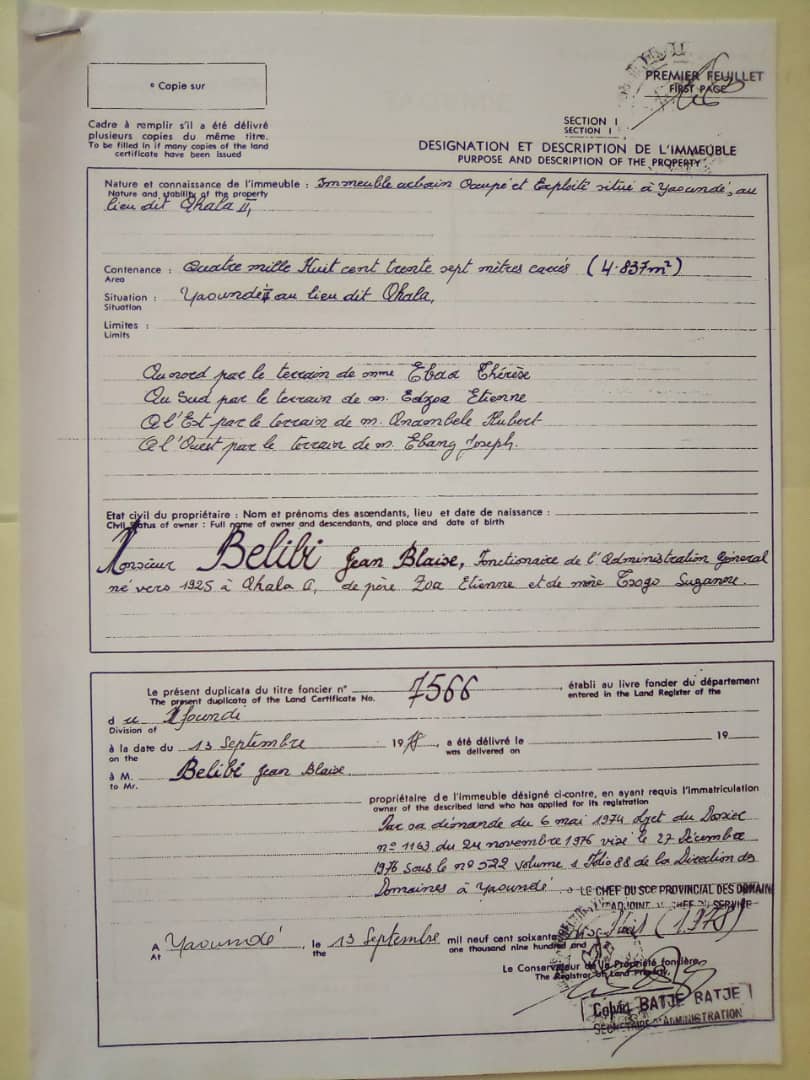 PREMIER FEUILLET
FIRST PAGE
° Copie sur
Cadre à remplir s'il a été délivré
plusieurs copies du même titre.
To be filled in if many copies of the land
certificate have been issued
SECTION I
SECTION I
DESIGNATION ET DESCRIPTION DE L'IMMEUBLE
PURPOSE AND DESCRIPTION OF THE PROPERTY
Nature et connaissance de l'immeuble : Immeuble urbain Occupé et Exploité situé à Yaoundé, au
Nature and stability of the property
lieu dit Ohala II,
Contenance : Quatre mille Huit cent trente sept mètres carrés (4.837m²)
Area
Situation : Yaoundé au lieu dit Ohala,
Situation
Limites :
Limits
Au nord par le terrain de mme Ebaa Thérèse
Au Sud par le terrain de m. Edzoa Etienne
A l'Est par le terrain de m. Onambele Hubert
A l'Ouest par le terrain de m. Ebang Joseph.
Etat civil du propriétaire : Nom et prénoms des ascendants, lieu et date de naissance :
Civil Status of owner : Full name of owner and descendants, and place and date of birth
Monsieur Belibi Jean Blaise, Fonctionaire de l'Administration Général
né vers 1925 à Ohala, de père Zoa Etienne et de mère Tsogo Suzanne.
Le présent duplicata du titre foncier n° 7566, établi au livre foncier du département
The present duplicata of the Land Certificate No. entered in the Land Register of the
du Mfoundi
Division of
à la date du 13 Septembre 1978, a été délivré le 19
on the was delivered on
à M. Belibi Jean Blaise
to Mr.
propriétaire de l'immeuble désigné ci-contre, en ayant requis l'immatriculation
owner of the described land who has applied for its registration
Par sa démande du 6 mai 1974 objet du Dossier
n° 1163 du 24 novembre 1976 visé le 27 Décembre
1976 sous le n° 522 volume 1 Folio 88 de la Direction des
Domaines à Yaoundé.
LE CHEF DU SCE PROVINCIAL DES DOMAIN
L'ADJOINT AU CHEF DU SERVICE
A Yaoundé, le 13 Septembre mil neuf cent soixante dix huit (1978)
At the one thousand nine hundred and
Le Conservateur de la Propriété foncière,
The Registrar of Land Property,
BATJE BATJE
SECRETAIRE D'ADMINISTRATION